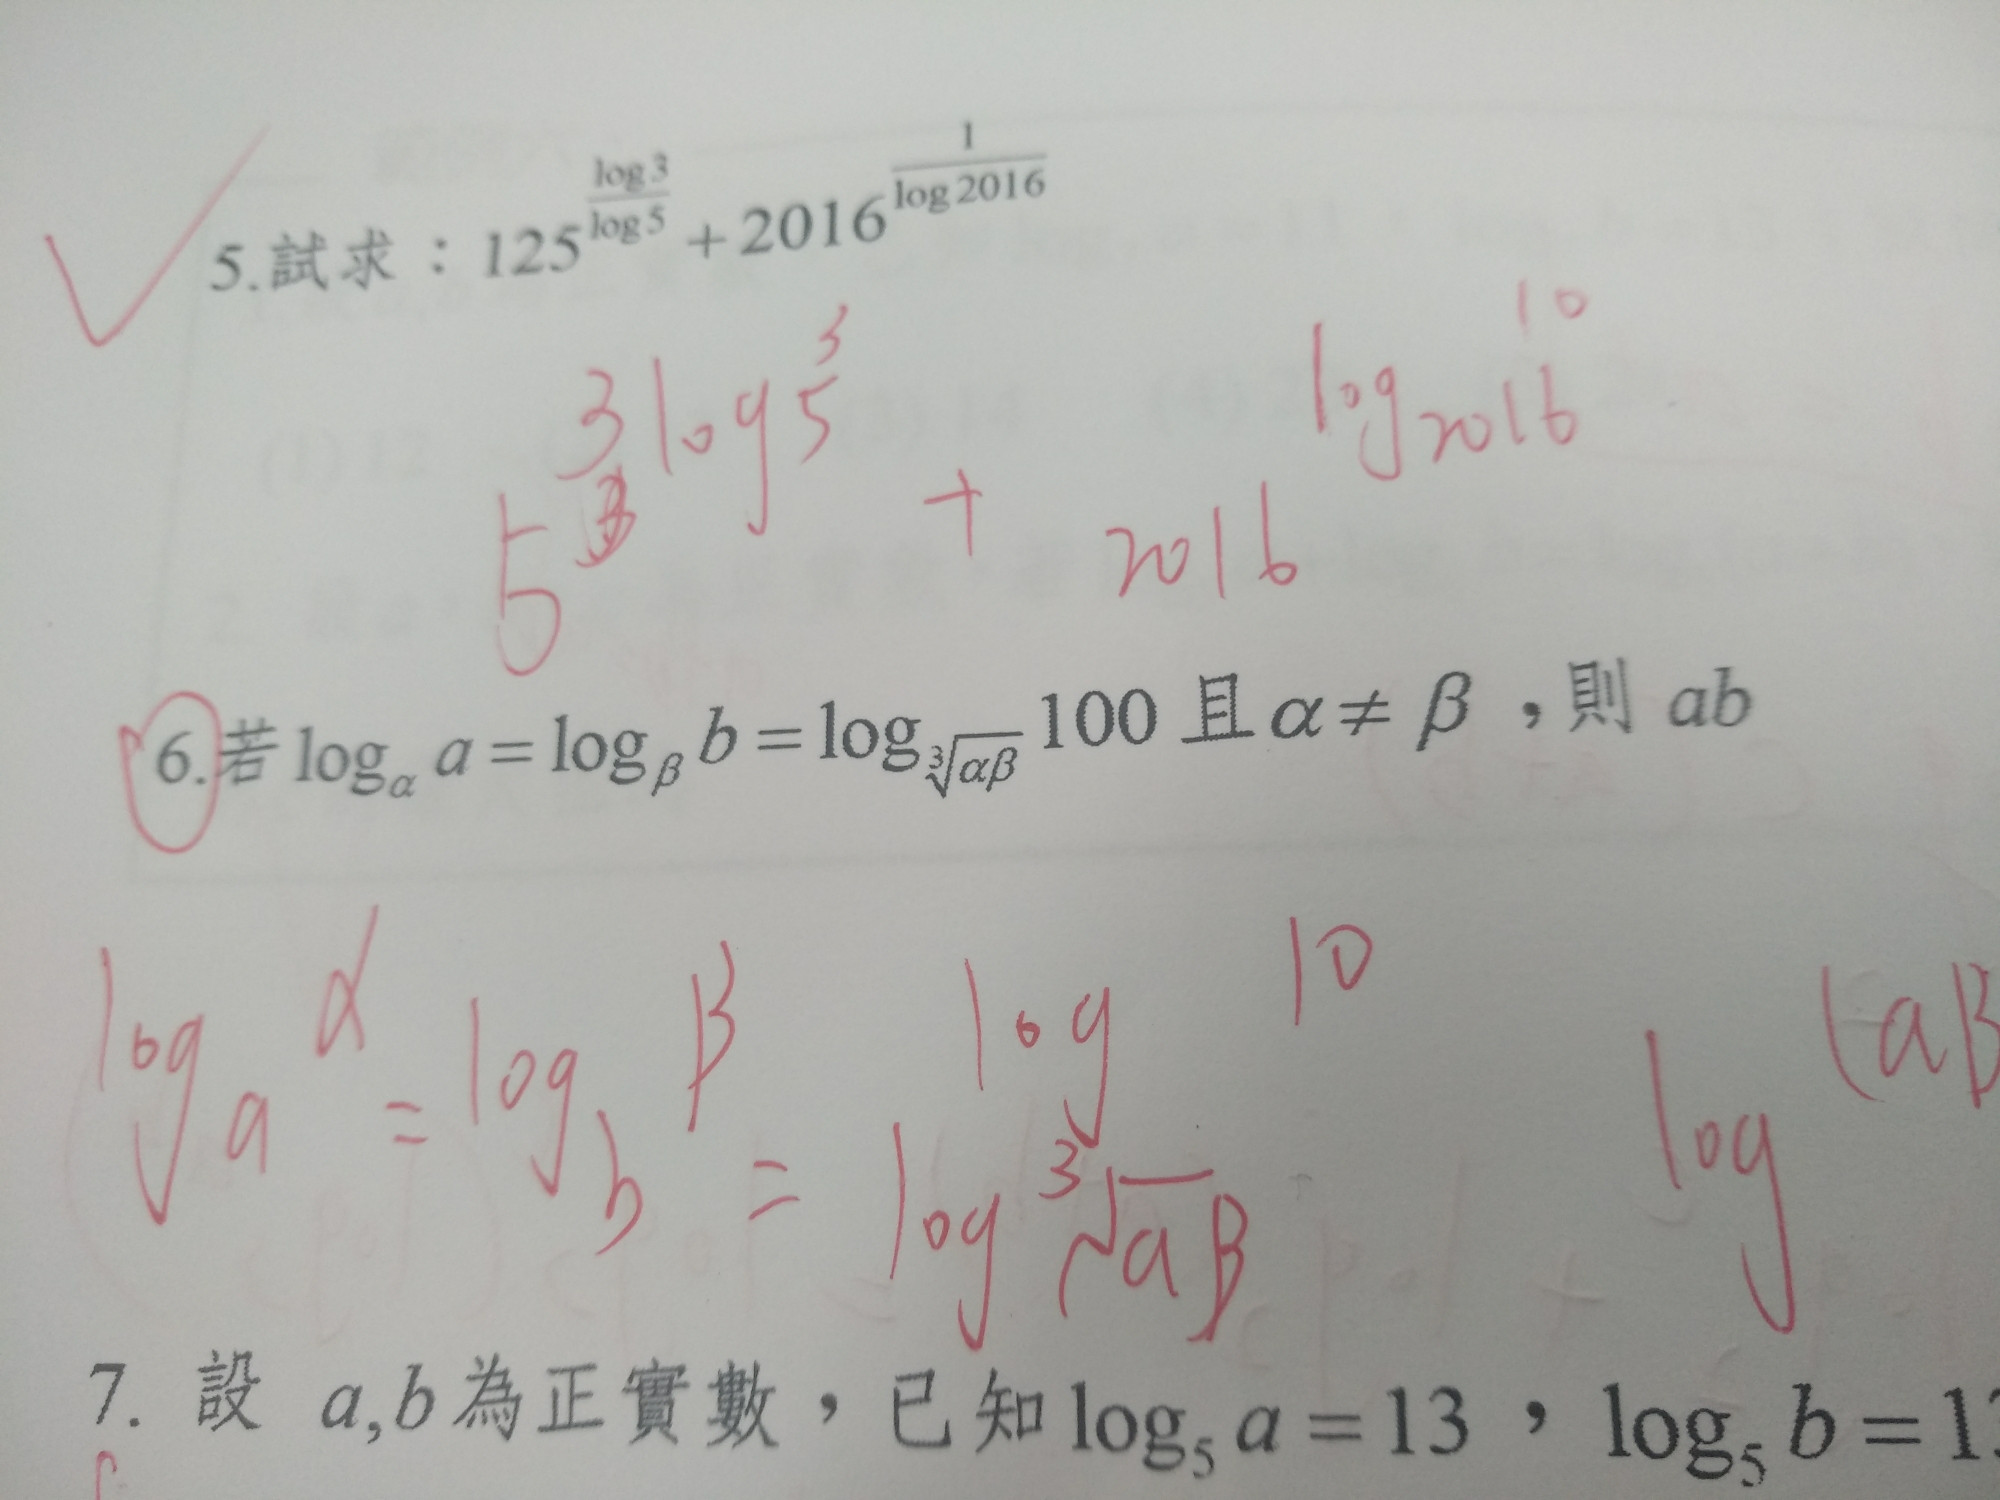 5.試求：125^{\frac{log3}{log5}}+2016^{\frac{1}{log2016}}
5^{3log_5 3} + 2016^{log_{2016} 10}
6.若 log_α a = log_β b = log_{∛(αβ)} 100 且 α ≠ β ，則 ab
log_a α = log_b β = \frac{log 10}{log ∛(aβ)} log (aβ
7. 設 a,b 為正實數，已知 log_5 a = 13 ， log_5 b = 1